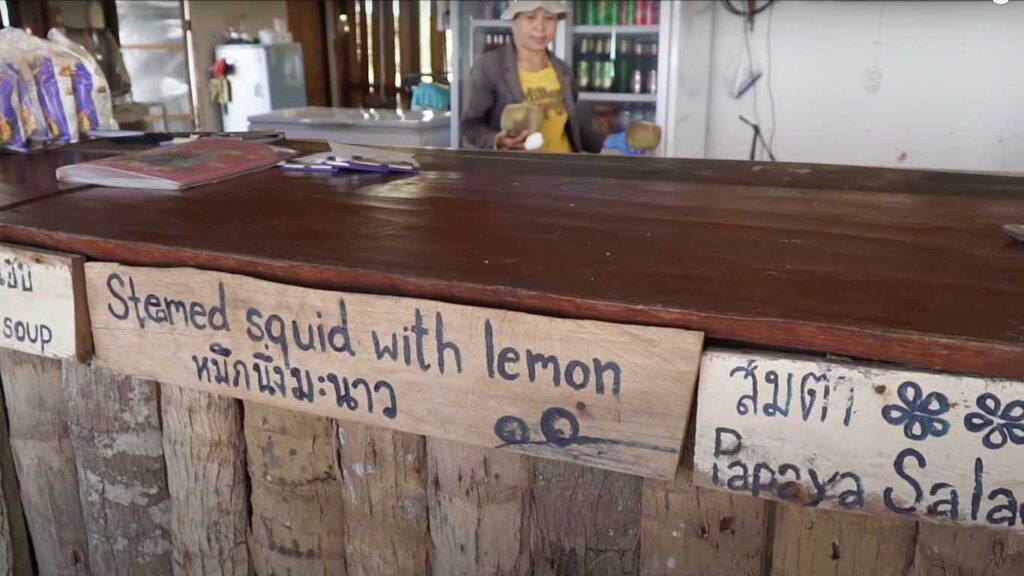 SOUP
Stemed squid with lemon
หมึกนึ่งมะนาว
ส้มตำ
Papaya Sala